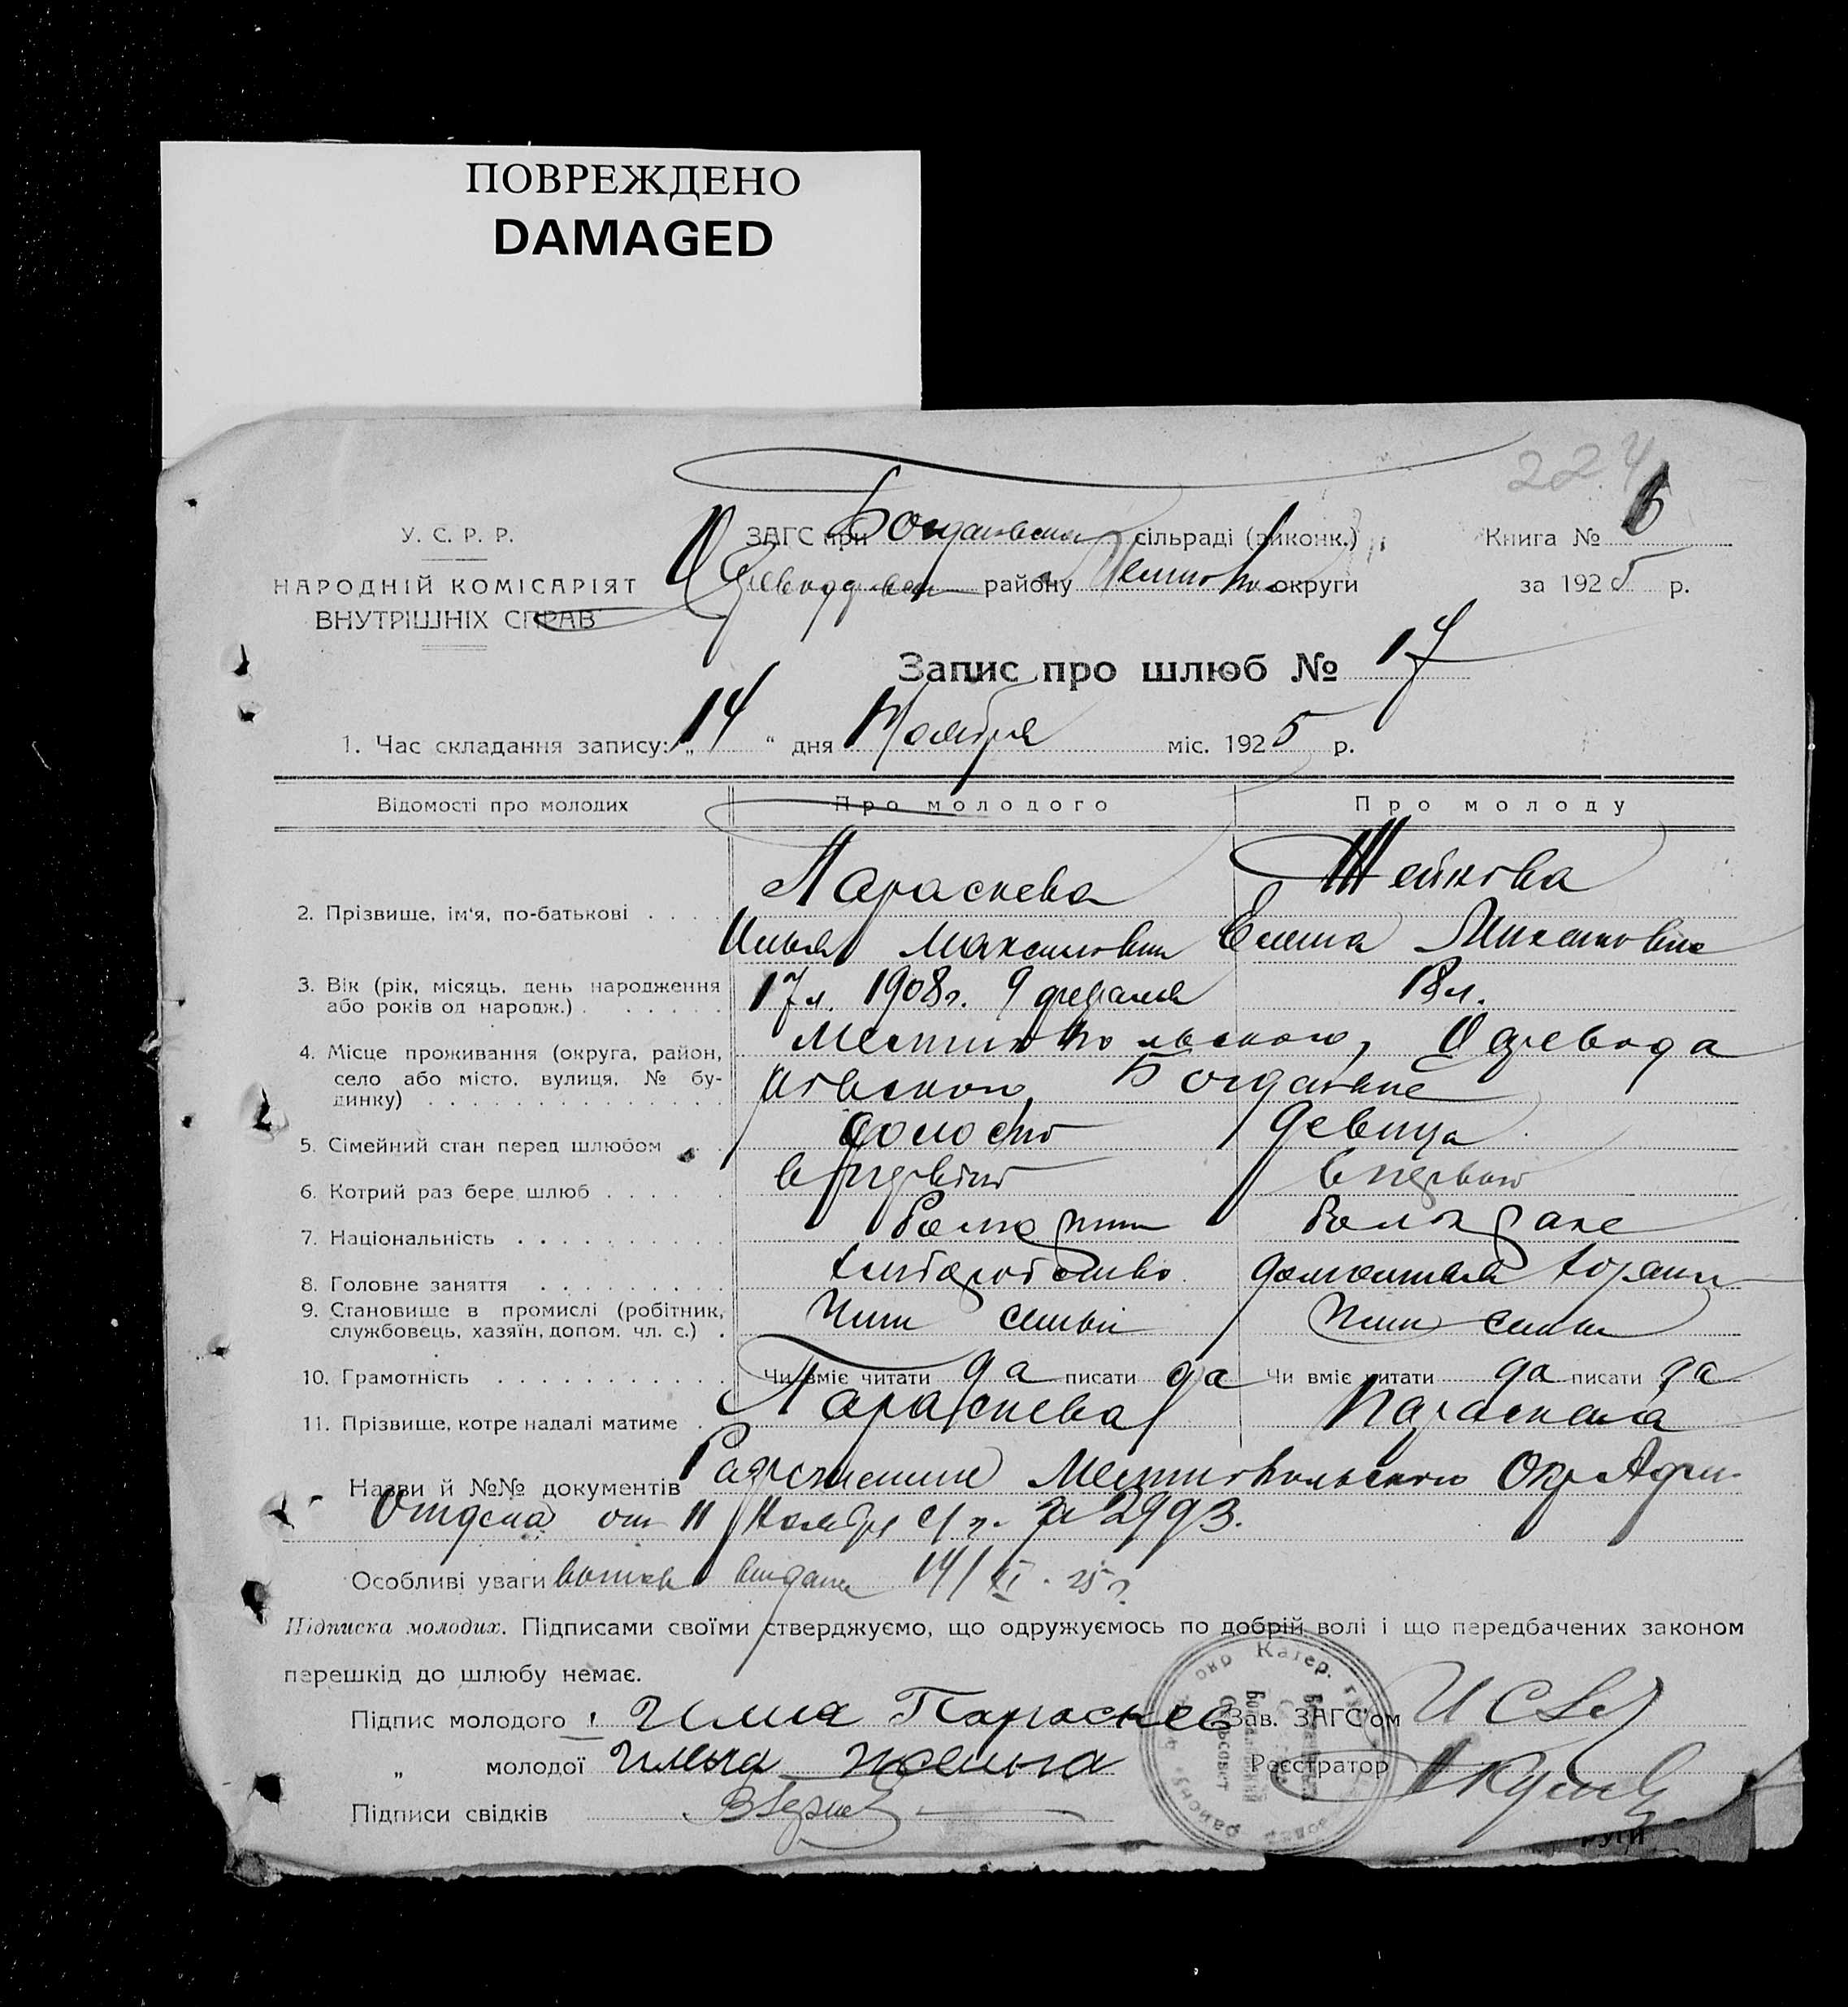 ПОВРЕЖДЕНО
DAMAGED
224
У. С. Р. Р.
НАРОДНІЙ КОМІСАРІЯТ
ВНУТРІШНІХ СПРАВ
ЗАГС при Богдановском сільраді (виконк.)
району округи
Книга № 6
за 1925 р.
Запис про шлюб № 17
1. Час складання запису: „14“ дня Ноября міс. 1925 р.
Відомості про молодих Про молодого Про молоду
2. Прізвище, ім'я, по-батькові . . . .
Параскева Жейнова
Илья Максимович Елена
3. Вік (рік, місяць, день народження або років од народж.) . . . . . .
17 л. 1908 г. 9 февраля 18 л.
4. Місце проживання (округа, район, село або місто, вулиця, № будинку) . . . . .
Мелитопольского,
Богдановке
5. Сімейний стан перед шлюбом . . . холост девица
6. Котрий раз бере шлюб . . . . . . в первый в первый
7. Національність . . . . . . . . . . болгарин болгарке
8. Головне заняття . . . . . . . . хлеборобство домашняя
9. Становище в промислі (робітник, службовець, хазяїн, допом. чл. с.) .
член семьи член семьи
10. Грамотність . . . . . . . . . . Чи вміє читати да писати да Чи вміє читати да писати да
11. Прізвище, котре надалі матиме . Параскева Параскева
Назви й №№ документів Разрешение Мелитопольского Окр Адм.
Отдела от 11 Ноября с/г. за 2993.
Особливі уваги выдана 14/XI - 25 г
Підписка молодих. Підписами своїми стверджуємо, що одружуємось по добрій волі і що передбачених законом
перешкід до шлюбу немає.
Підпис молодого Илия Параскев Зав. ЗАГС'ом
„ молодої Реєстратор
Підписи свідків
окр Катер.
району
руги